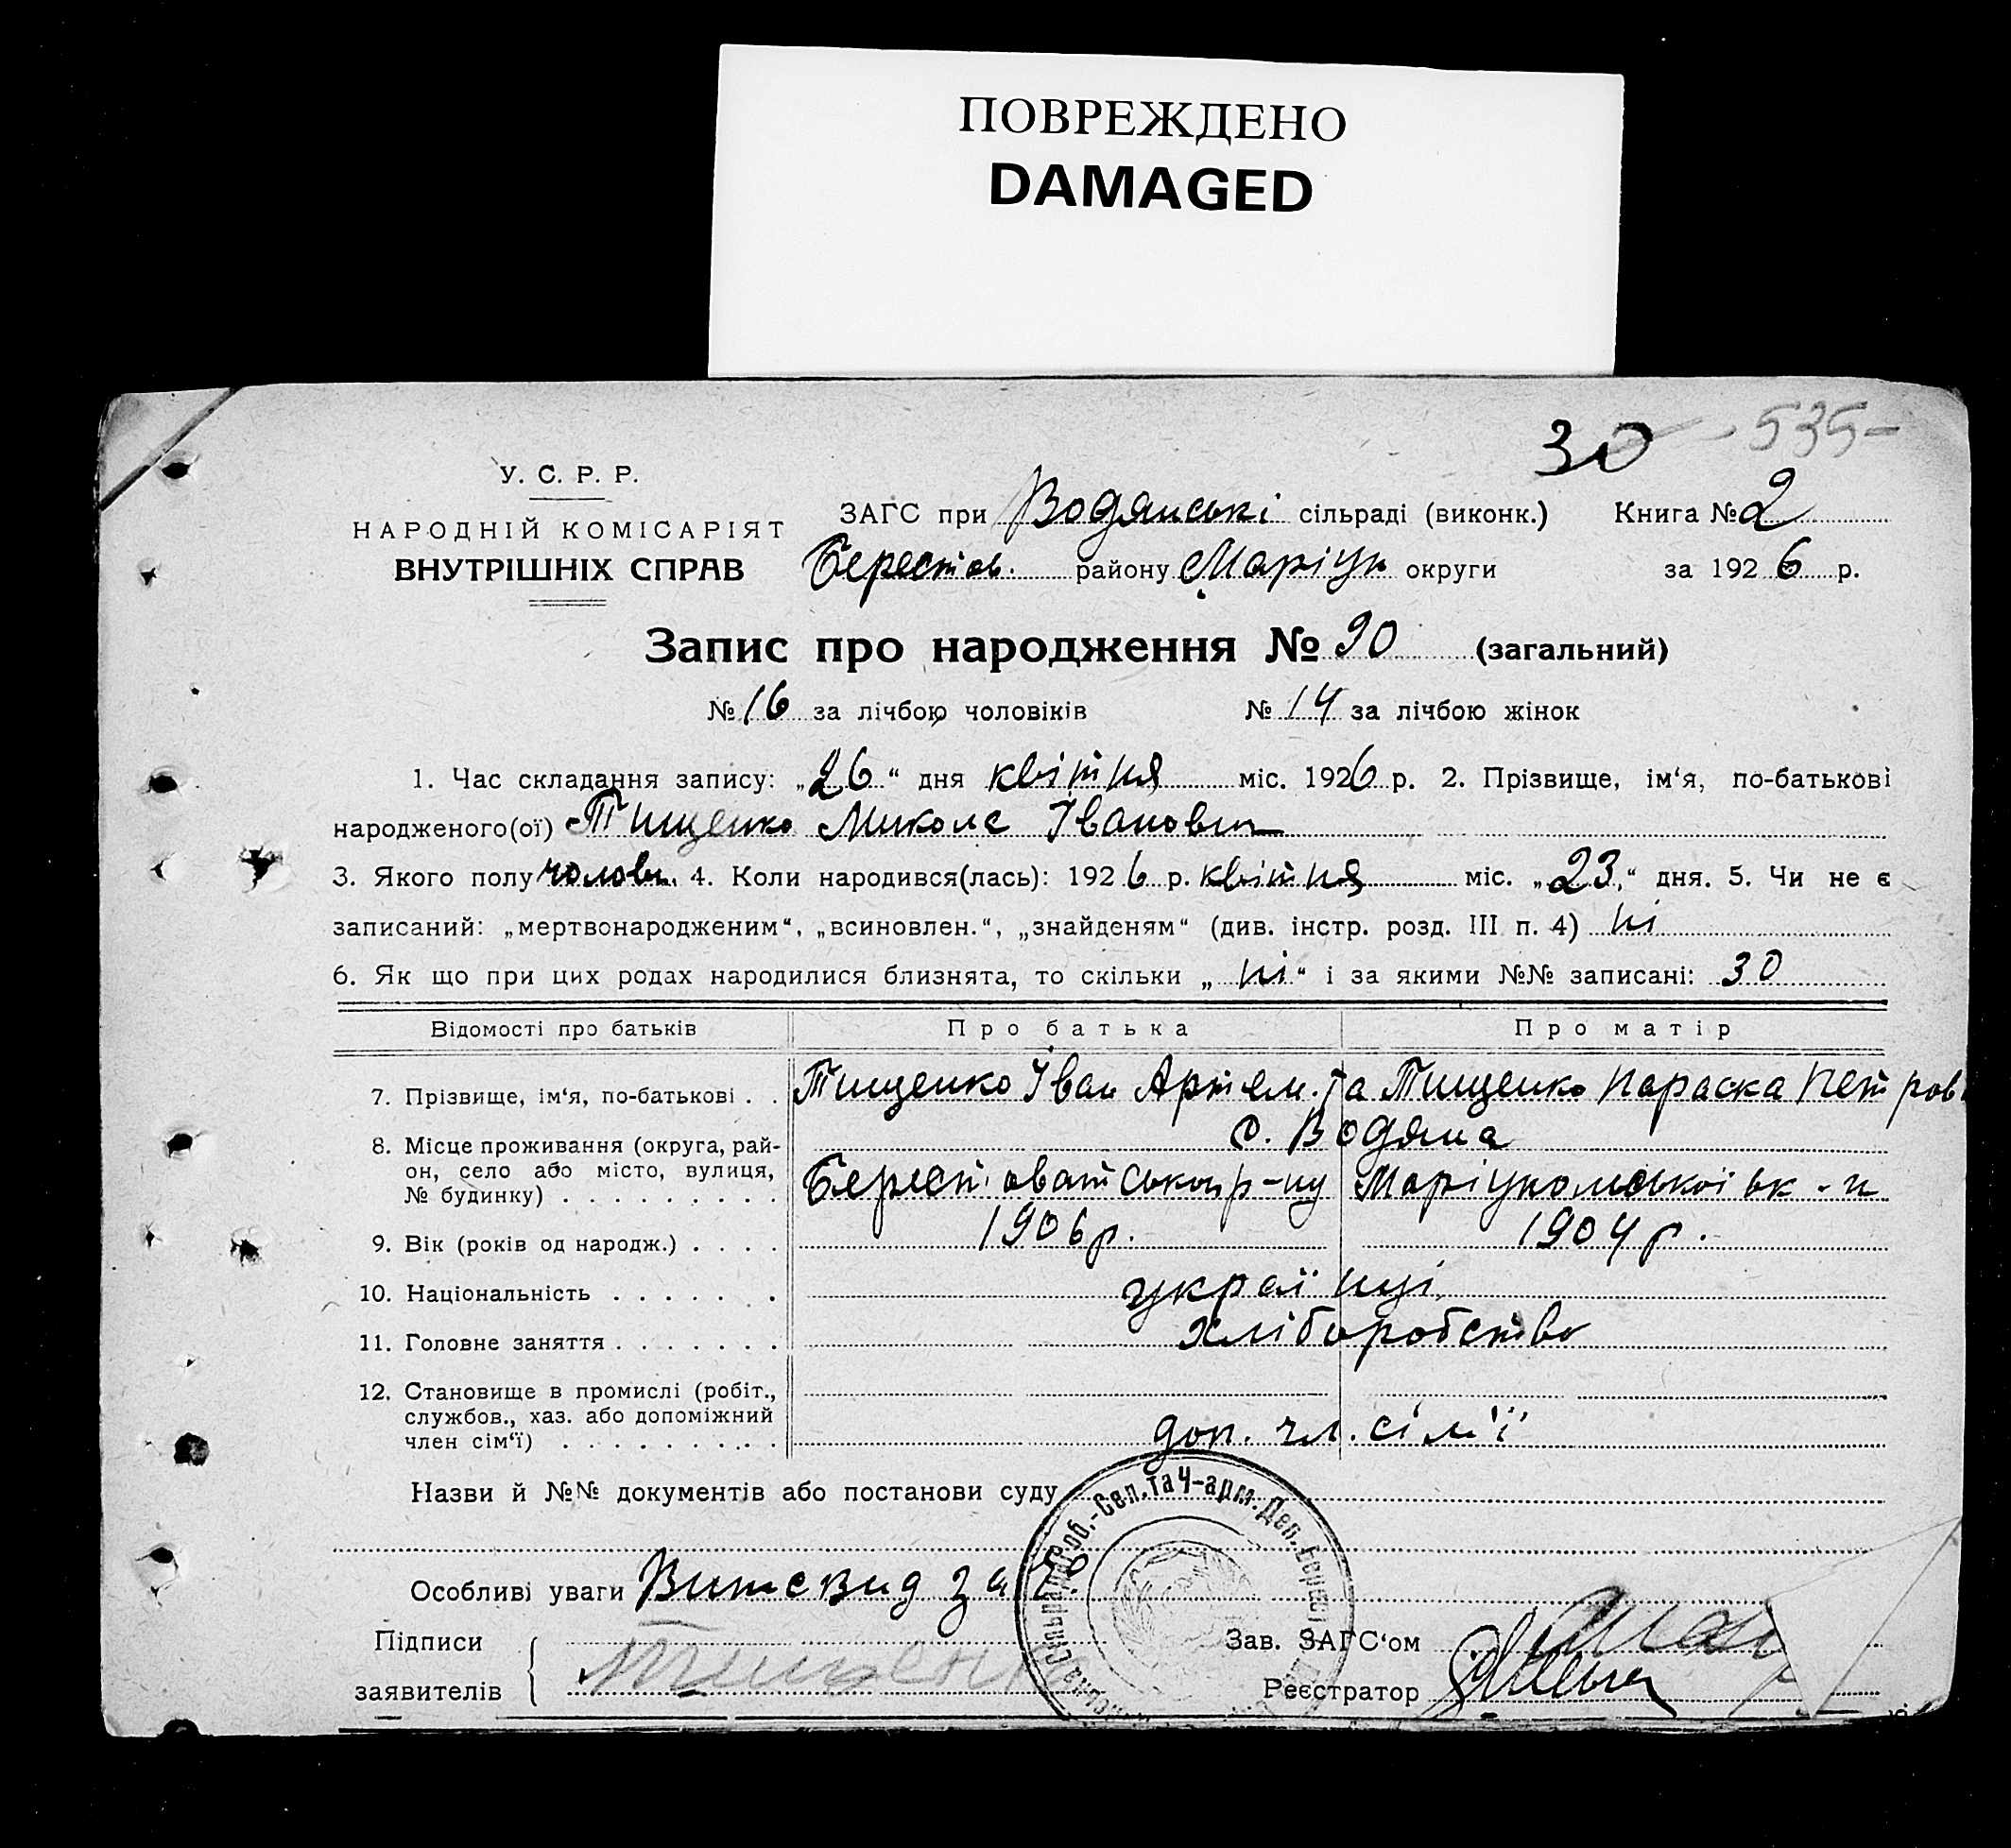 ПОВРЕЖДЕНО
DAMAGED
30 - 535-
У. С. Р. Р.
НАРОДНІЙ КОМІСАРІЯТ
ВНУТРІШНІХ СПРАВ
ЗАГС при Водянські сільраді (виконк.) Книга № 2
Берестов. району Маріуп округи за 1926 р.
Запис про народження № 30 (загальний)
№ 16 за лічбою чоловіків № 14 за лічбою жінок
1. Час складання запису: „26“ дня квітня міс. 1926 р. 2. Прізвище, ім‘я, по-батькові
народженого(ої) Тищенко Микола Іванович
3. Якого полу чолові. 4. Коли народився(лась): 1926 р. квітня міс. „23“ дня. 5. Чи не є
записаний: „мертвонародженим“, „всиновлен.“, „знайденям“ (див. інстр. розд. III п. 4) ні
6. Як що при цих родах народилися близнята, то скільки „ні“ і за якими №№ записані: 30
Відомості про батьків Про батька Про матір
7. Прізвище, ім‘я, по-батькові . . Тищенко Іван Артем. та Тищенко Параска Петров
8. Місце проживання (округа, рай-
он, село або місто, вулиця,
№ будинку) . . . . . . . . .
с. Водяна
Берестоватського р-ну Маріупольської ок-и
9. Вік (років од народж.) . . . . 1906 р. 1904 р.
10. Національність . . . . . . . українці
11. Головне заняття . . . . . . . хліборобство
12. Становище в промислі (робіт.,
службов., хаз. або допоміжний
член сім‘ї) . . . . . . . . . .
доп. чл. сім'ї
Назви й №№ документів або постанови суду
Роб.-Сел. та Ч-арм. Деп.
Особливі уваги Вит свид за
Підписи
заявителів
Тищенко
Зав. ЗАГС‘ом
Реєстратор